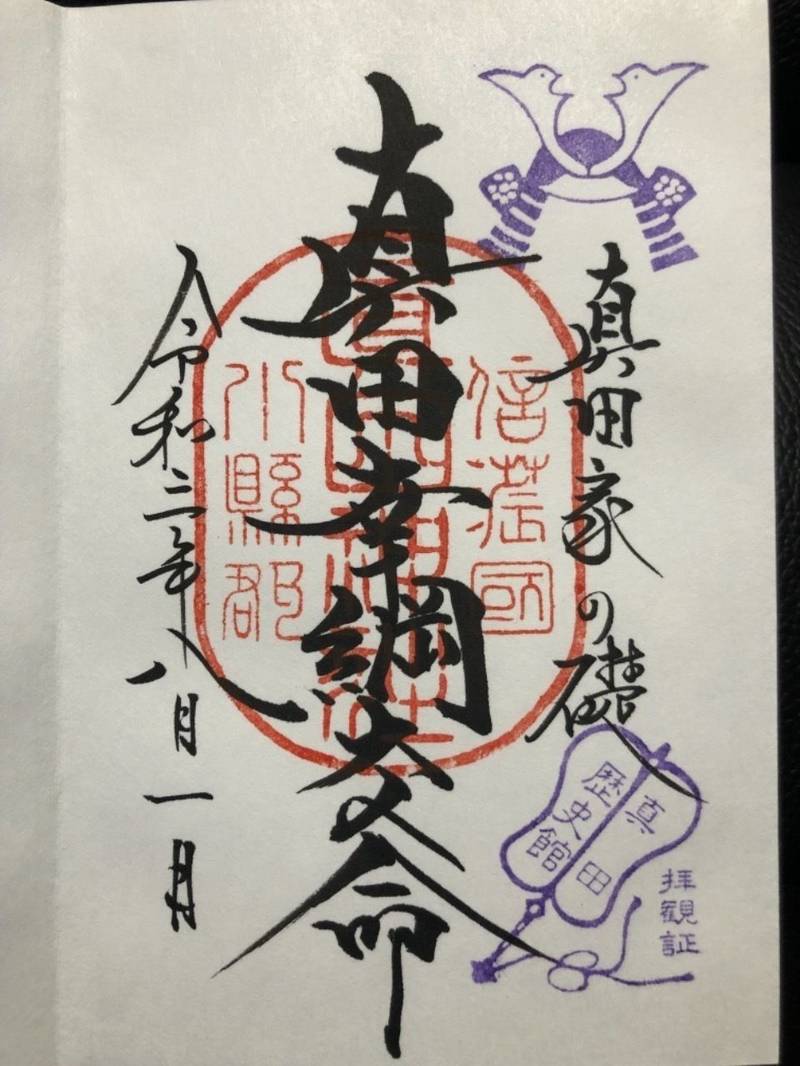 真田家の礎
真田幸綱大人命
令和三年八月一日
信濃國
小縣郡
真田
歴史館
拝観証